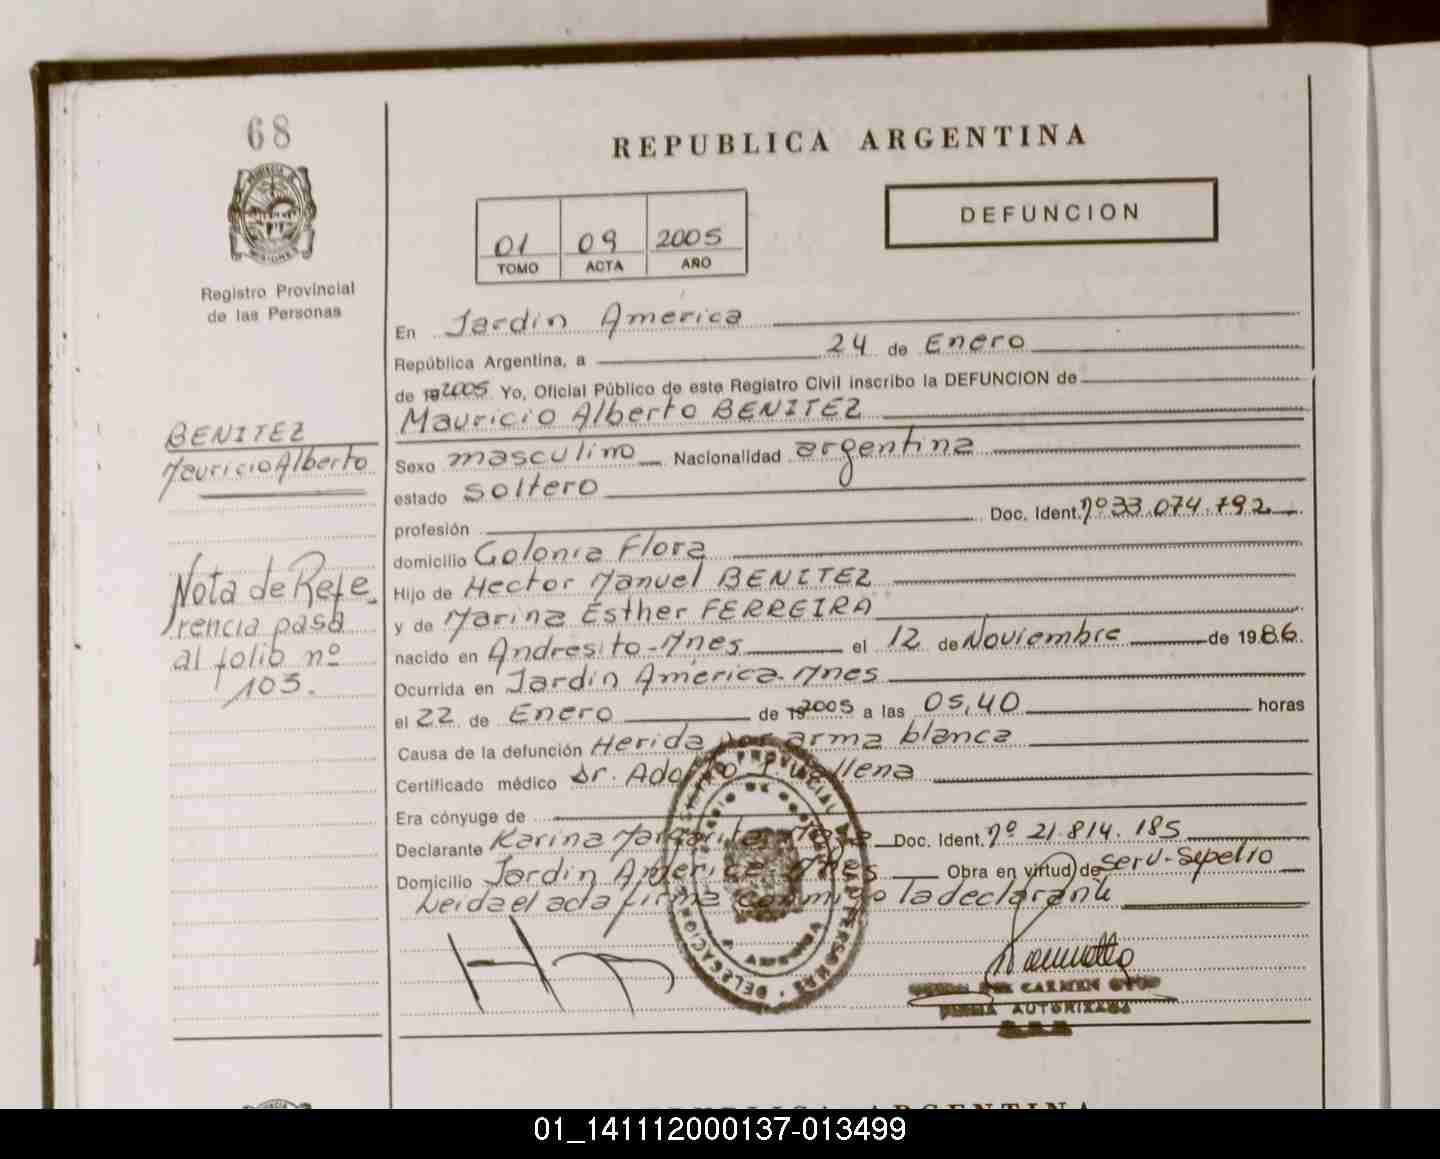 68
Registro Provincial
de las Personas
BENITEZ
Mauricio Alberto
Nota de Refe
rencia pasa
al folio nº
103.
REPUBLICA ARGENTINA
01 09 2005
TOMO ACTA AÑO
DEFUNCION
En Jardin America
República Argentina, a 24 de Enero
de 192005 Yo, Oficial Público de este Registro Civil inscribo la DEFUNCION de
Mauricio Alberto BENITEZ
Sexo masculino Nacionalidad argentina
estado Soltero
profesión Doc. Ident. nº 33.074.792
domicilio Colonia Flora
Hijo de Hector Manuel BENITEZ
y de Marina Esther FERREIRA
nacido en Andresito-Mnes el 12 de Noviembre de 1986.
Ocurrida en Jardin América-Mnes
el 22 de Enero de 192005 a las 05,40 horas
Causa de la defunción Herida por arma blanca
Certificado médico Dr. Adolfo
Era cónyuge de
Declarante Karina Margarita Doc. Ident. nº 21.814.185
Domicilio Jardin America-Mnes Obra en virtud de Serv-Sepelio
Leida el acta firma conmigo la declarante
DEL CARMEN
FIRMA AUTORIZADA
REPUBLICA ARGENTINA
01_141112000137-013499